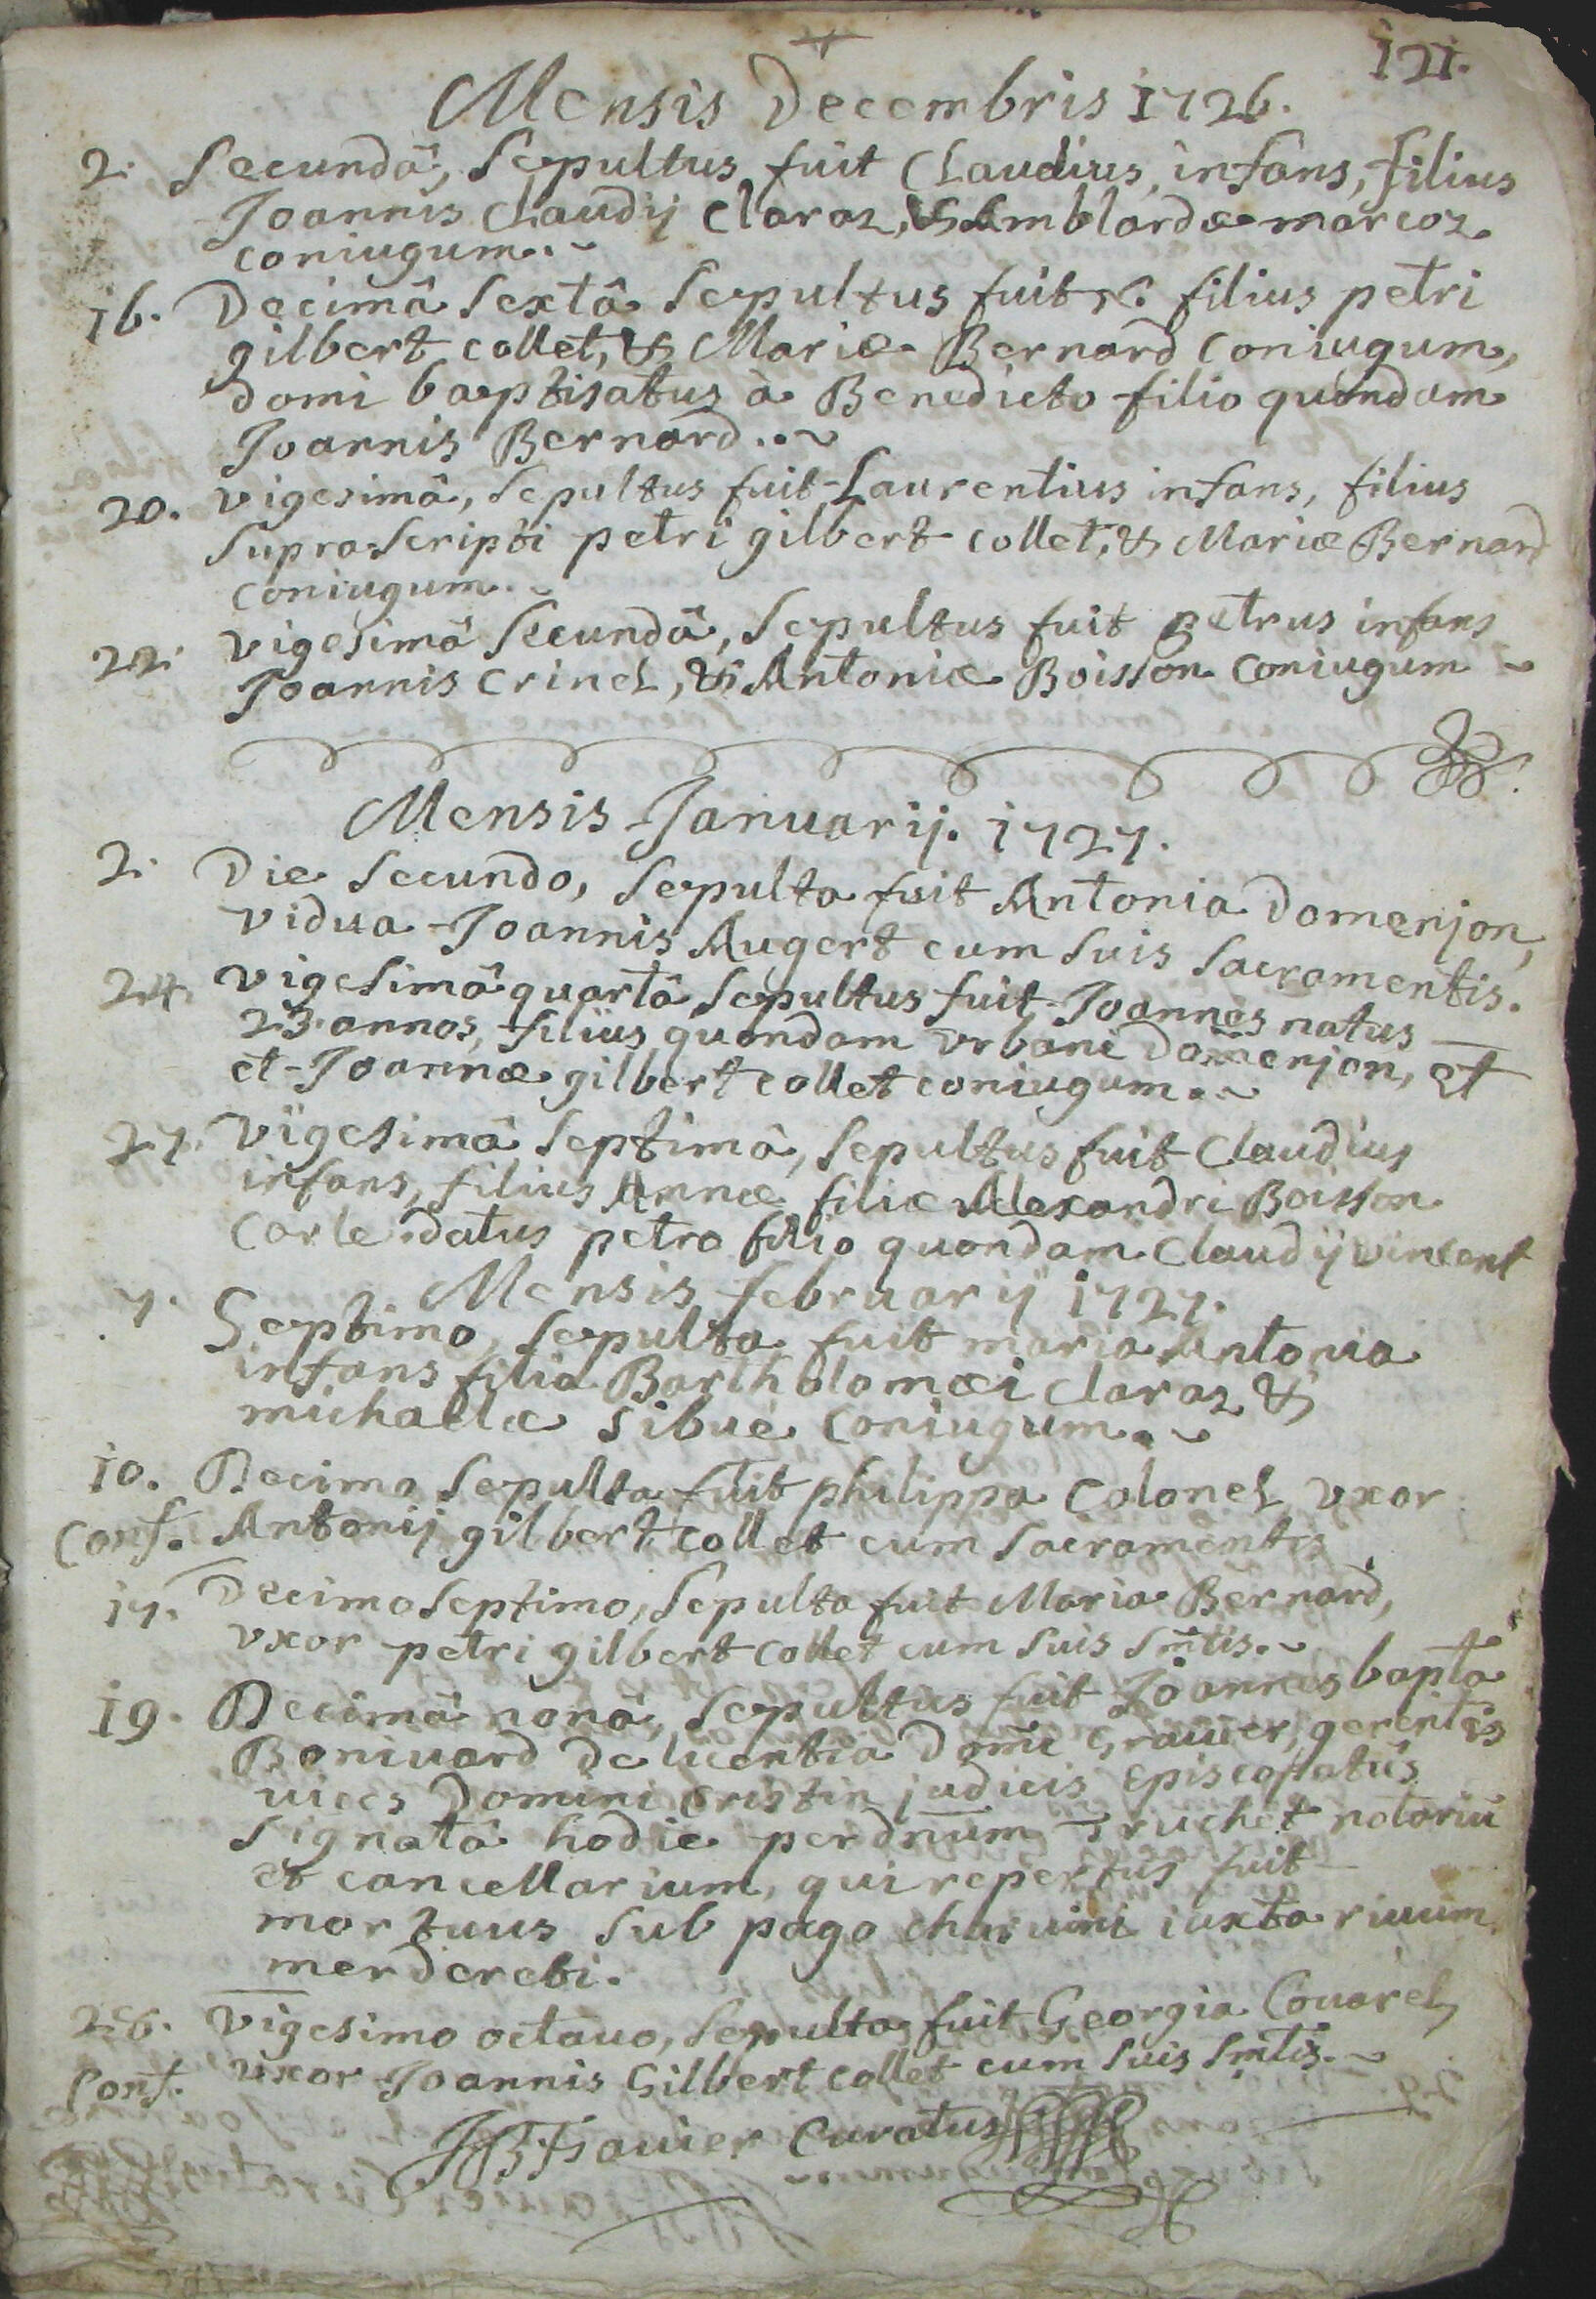 121.
Mensis Decembris 1726.
2. Secundâ, Sepultus fuit Claudius, infans, filius
Joannis Claudij Claraz, & Amblardæ marcoz
coniugum.
16. Decimâ Sextâ Sepultus fuit N. filius petri
gilbert collet, & Mariæ Bernard Coniugum,
domi baptisatus à Benedicto filio quondam
Joannis Bernard..
20. vigesimâ, Sepultus fuit Laurentius infans, filius
supra scripti petri gilbert collet, & Mariæ Bernard
Coniugum.
22. vigesimâ Secundâ, Sepultus fuit petrus infans
Joannis Crinel, & Antoniæ Boisson Coniugum
Mensis Januarij. 1727.
2. Die Secundo, Sepulta fuit Antonia Domenjon,
vidua Joannis Augert cum suis Sacramentis.
24. vigesimâ quartâ Sepultus fuit Joannes natus
23. annos, filius quondam vrbani Domenjon, et
et Joannæ gilbert collet coniugum.
27. Vigesimâ Septimâ, Sepultus fuit Claudius
infans, filius Annæ filiæ Alexandri Boisson
Carle datus petro filio quondam Claudij vincent
Mensis februarij 1727.
7. Septimo, Sepulta fuit maria Antonia
infans filia Bartholomæi Claraz &
michaelæ Sibué Coniugum.
10. Decimo Sepulta fuit philippa Colonel vxor
Conf. Antonij gilbert collet cum Sacramentis
17. Decimo Septimo, Sepulta fuit Maria Bernard,
vxor petri gilbert collet cum suis Smtis.
19. Decimâ nonâ, Sepultus fuit Joannes bapta
Boniuard de licentia Domi Grauier, gerentis
uices Domini Cristin judicis Episcopatûs
Signatâ hodie per dnum Truchet notariũ
et cancellarium, qui repertus fuit
mortuus sub pago charuini iuxta riuum
merderebi.
28. Vigesimo octauo, Sepulta fuit Georgia Couarel,
Conf. vxor Joannis Gilbert collet cum suis Smtis.
Curatus